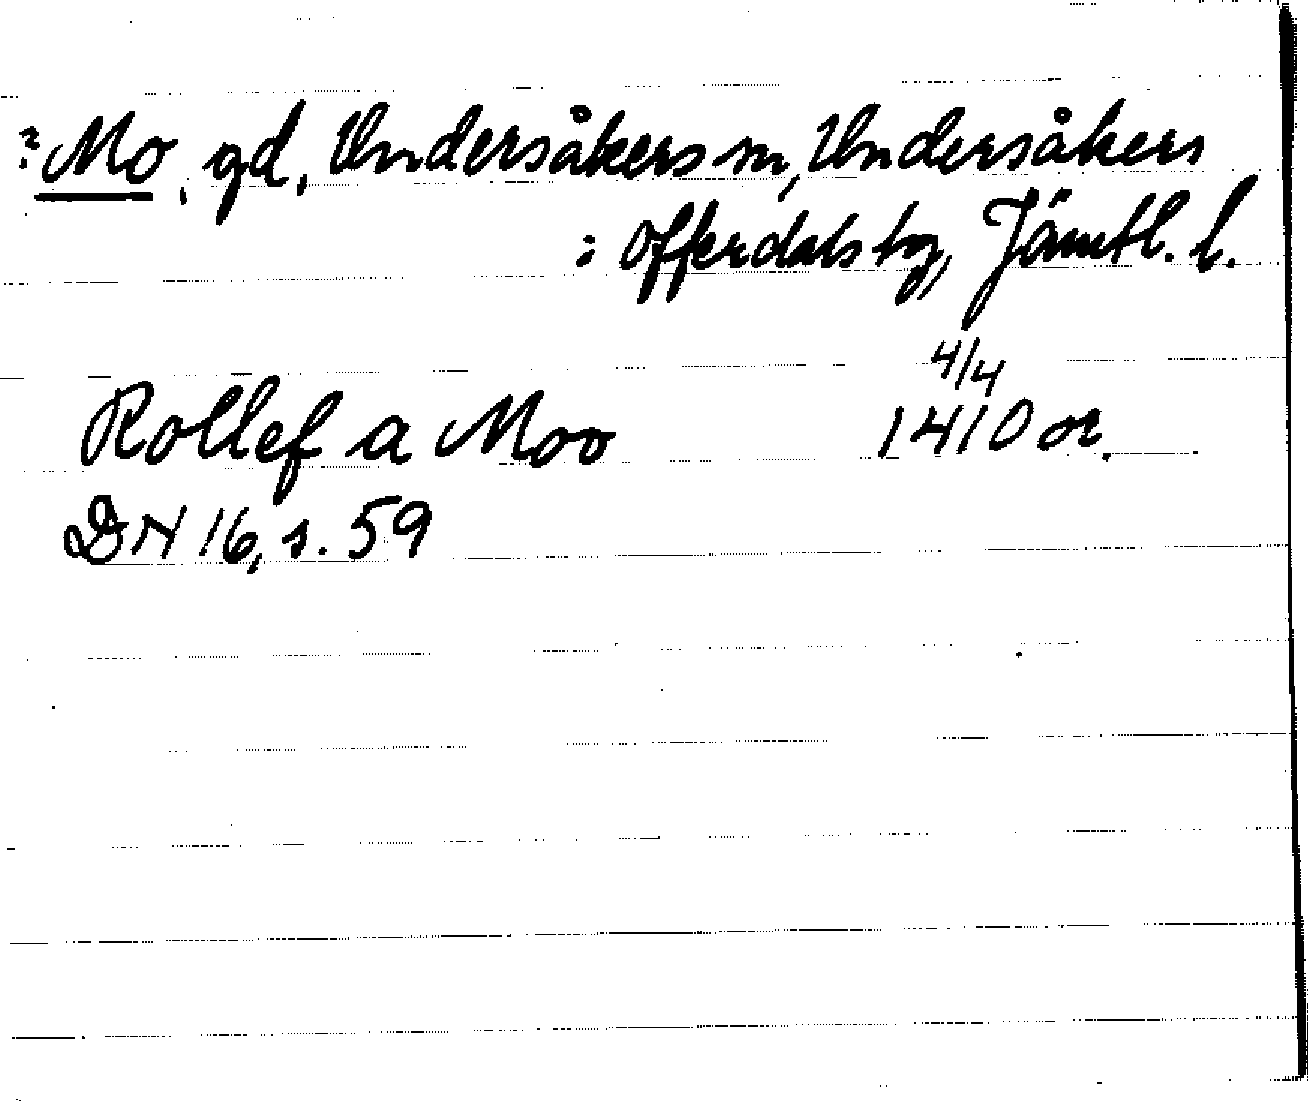 ? Mo, gd, Undersåkers sn, Undersåkers
: Offerdals tg, Jämtl. l.
4/4
Rollef a Moo 1410 or.
DN 16, s. 59